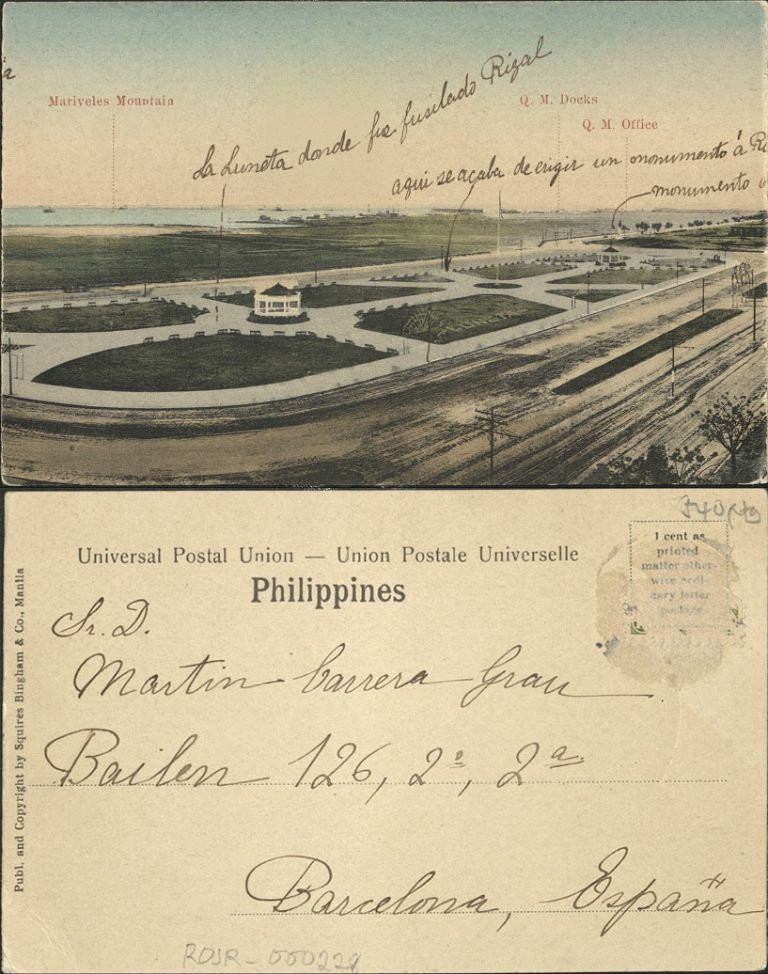 a
Mariveles Mountain
La Luneta donde fue fusilado Rizal
Q. M. Docks
Q. M. Office
aqui se acaba de erigir un monumento á Ri
monumento
Universal Postal Union — Union Postale Universelle
Philippines
1 cent as
printed
matter other-
wise ordi-
nary letter
postage
Sr. D.
Martin Carrera Grau
Bailen 126, 2º, 2ª
Barcelona, España
Publ. and Copyright by Squires Bingham & Co., Manila
ROJR-000229